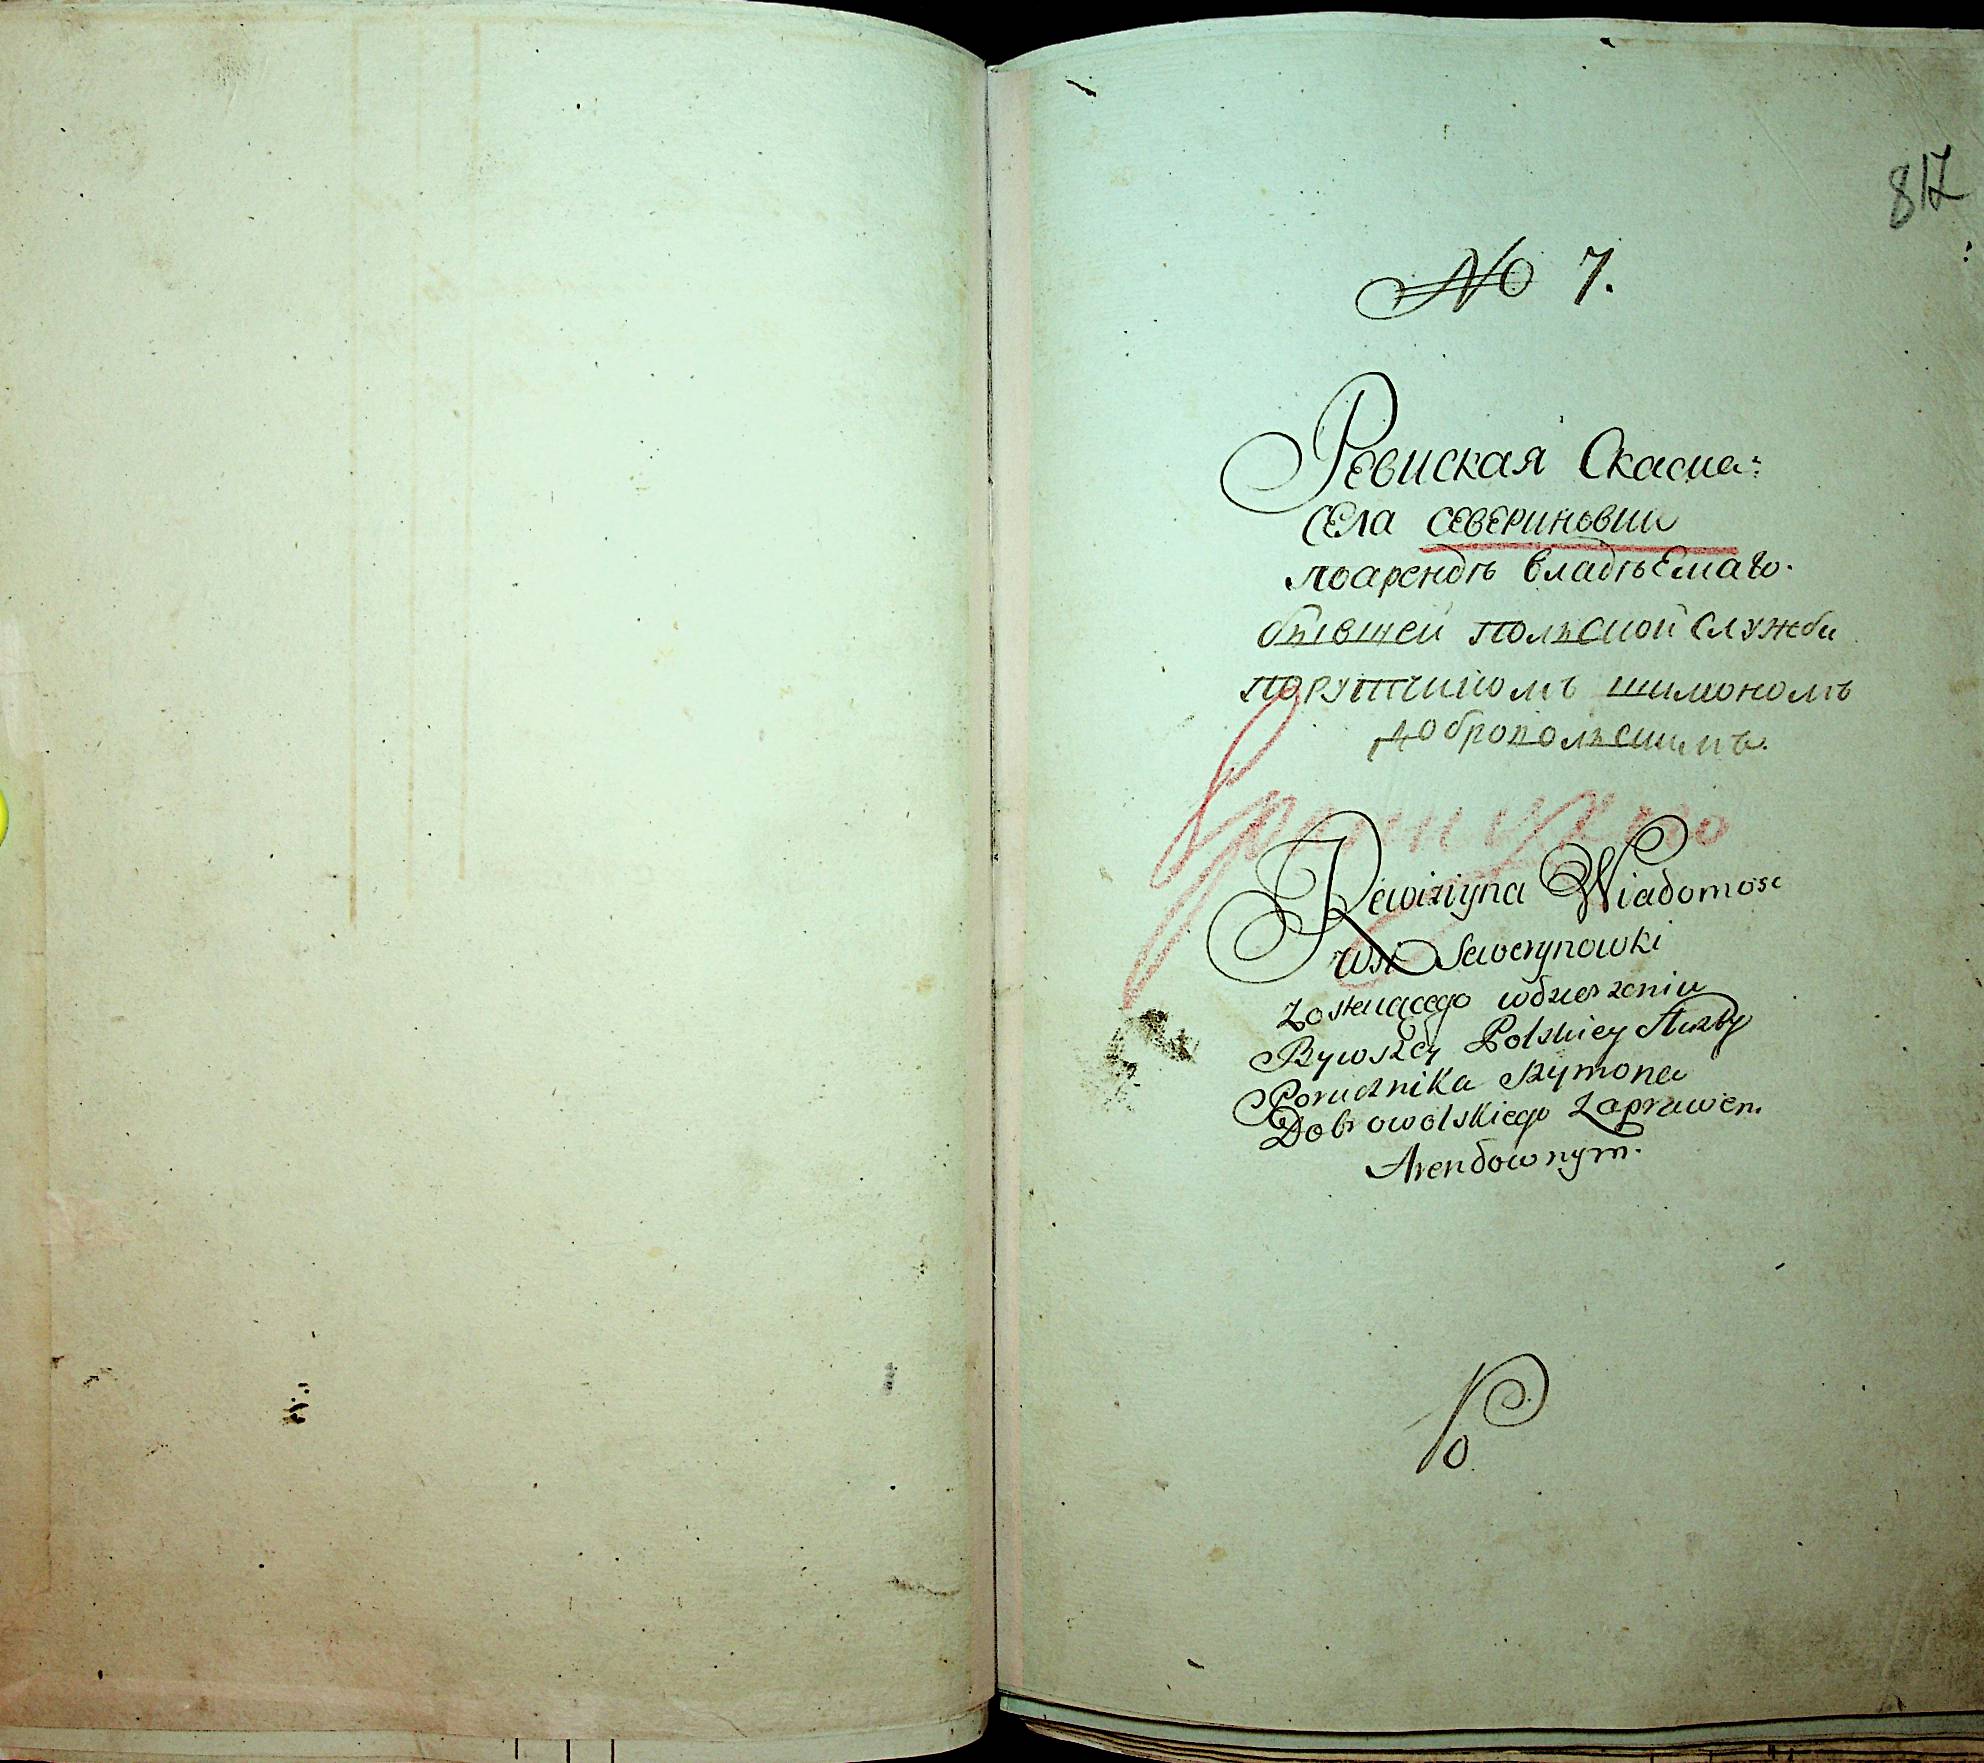 817
No 7.
Ревиская Скаска:
села севериновки
поарендѣ владѣемаго.
бывшей польской службы
порутчикомъ шимономъ
добропольскимъ.
Rewiziyna Wiadomosc
wsi Sewerynowki
Zosteiącego wdzierzeniu
Bywszey Polskiey Służby
Porucznika Szymona
Dobrowolskiego Zaprawem
Arendownym.